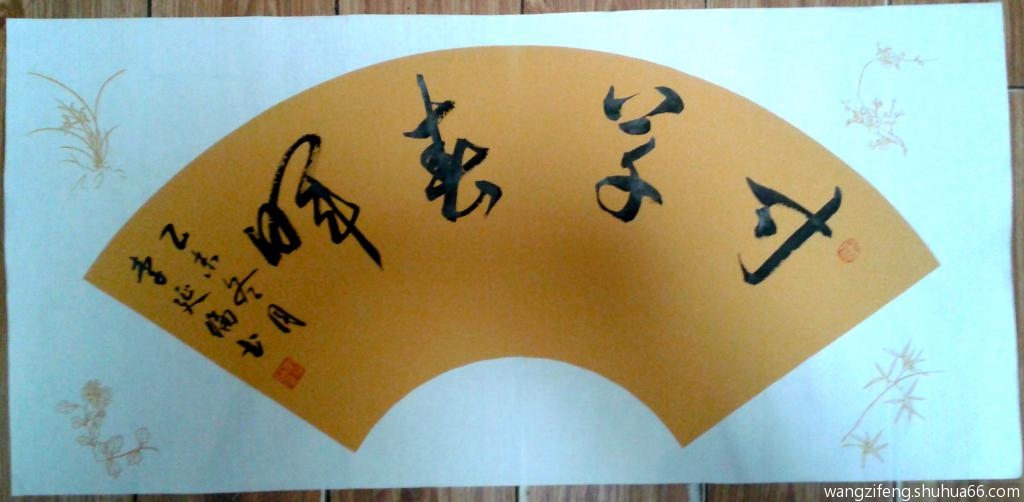 寸草春晖
乙未冬月
李延书
wangzifeng.shuhua66.com